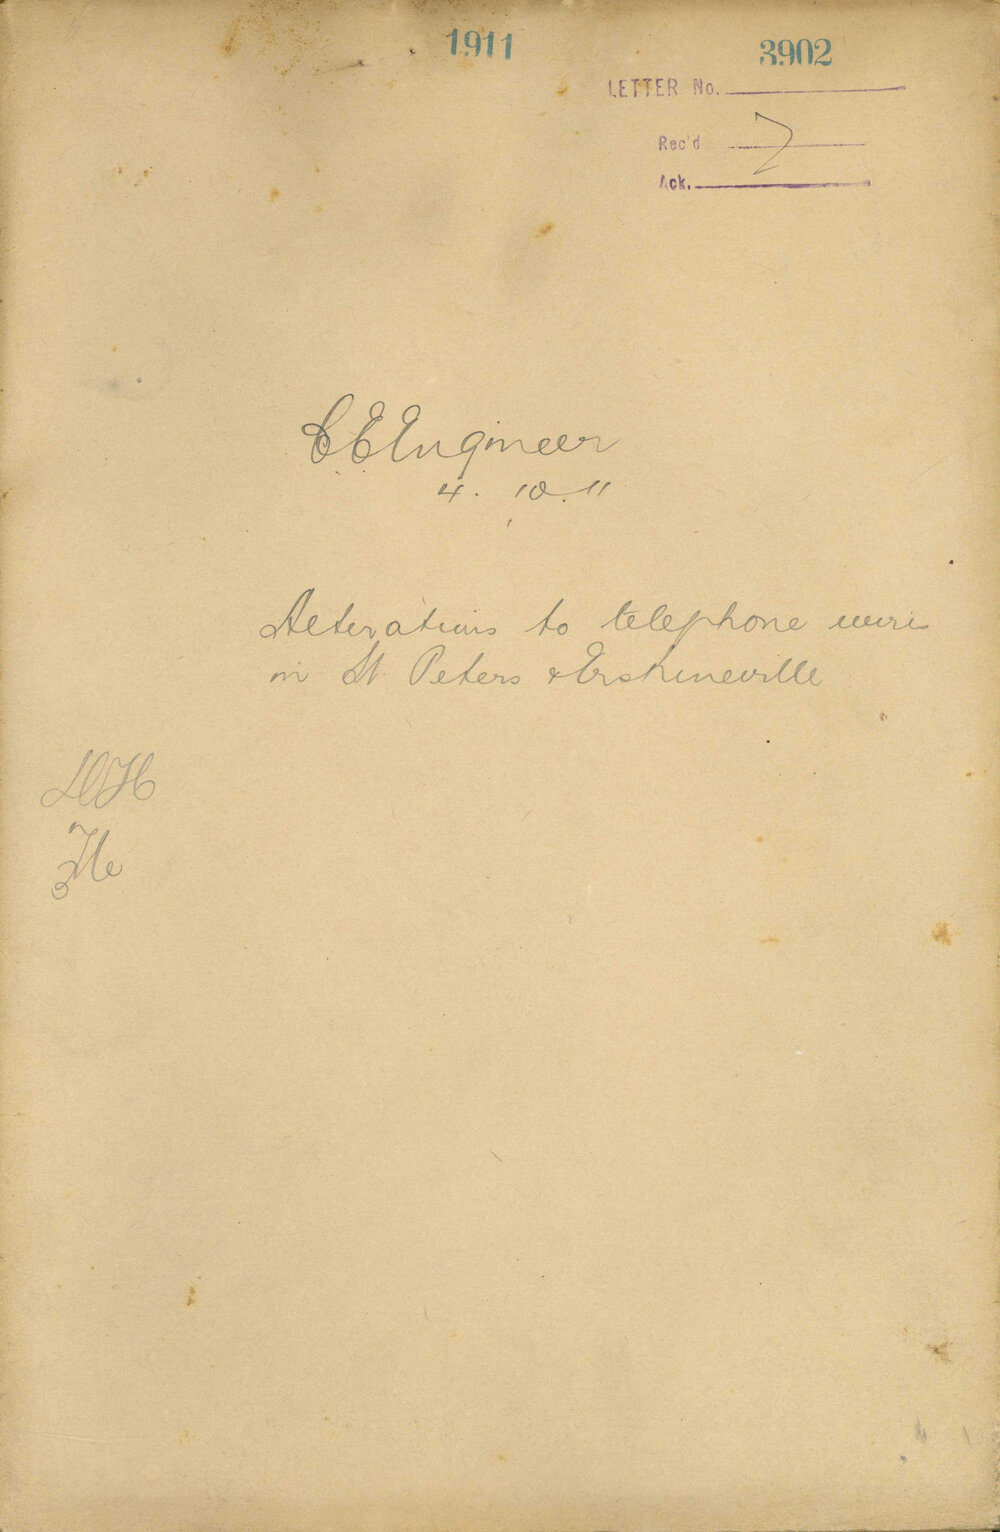 1911
3902
LETTER No.
Rec'd 7
Ack.
E E Engineer
4. 10. 11
Alterations to telephone wires
in St Peters & Erskineville